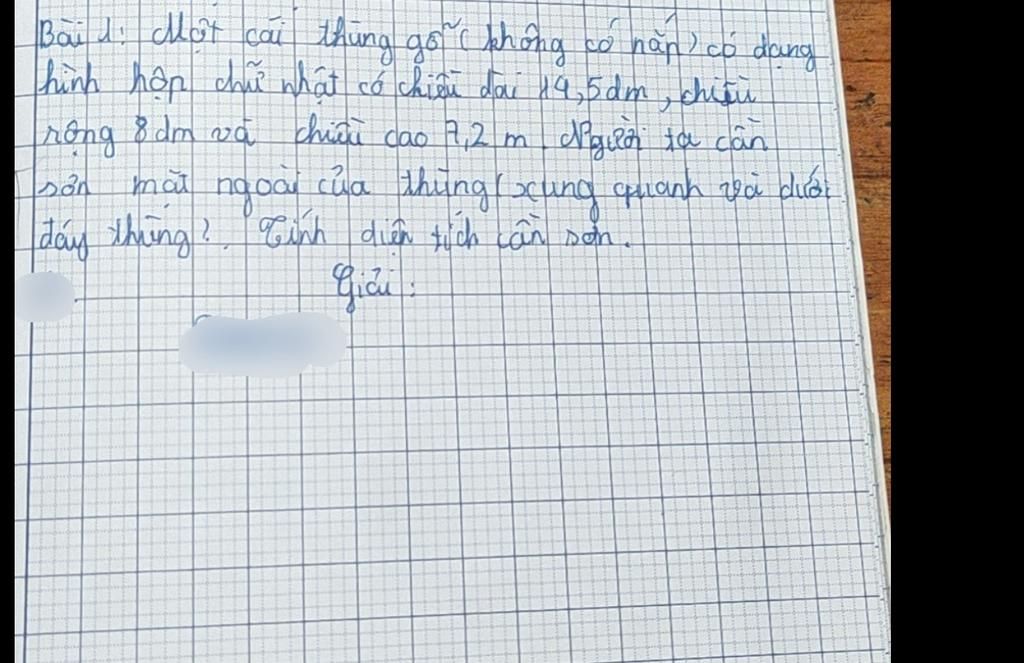 Bài 1: Một cái thùng gỗ ( không có nắp) có dạng
hình hộp chữ nhật có chiều dài 14,5dm, chiều
rộng 8dm và chiều cao 7,2 m. Người ta cần
sơn mặt ngoài của thùng( xung quanh và dưới
đáy thùng?. Tính diện tích cần sơn.
Giải: